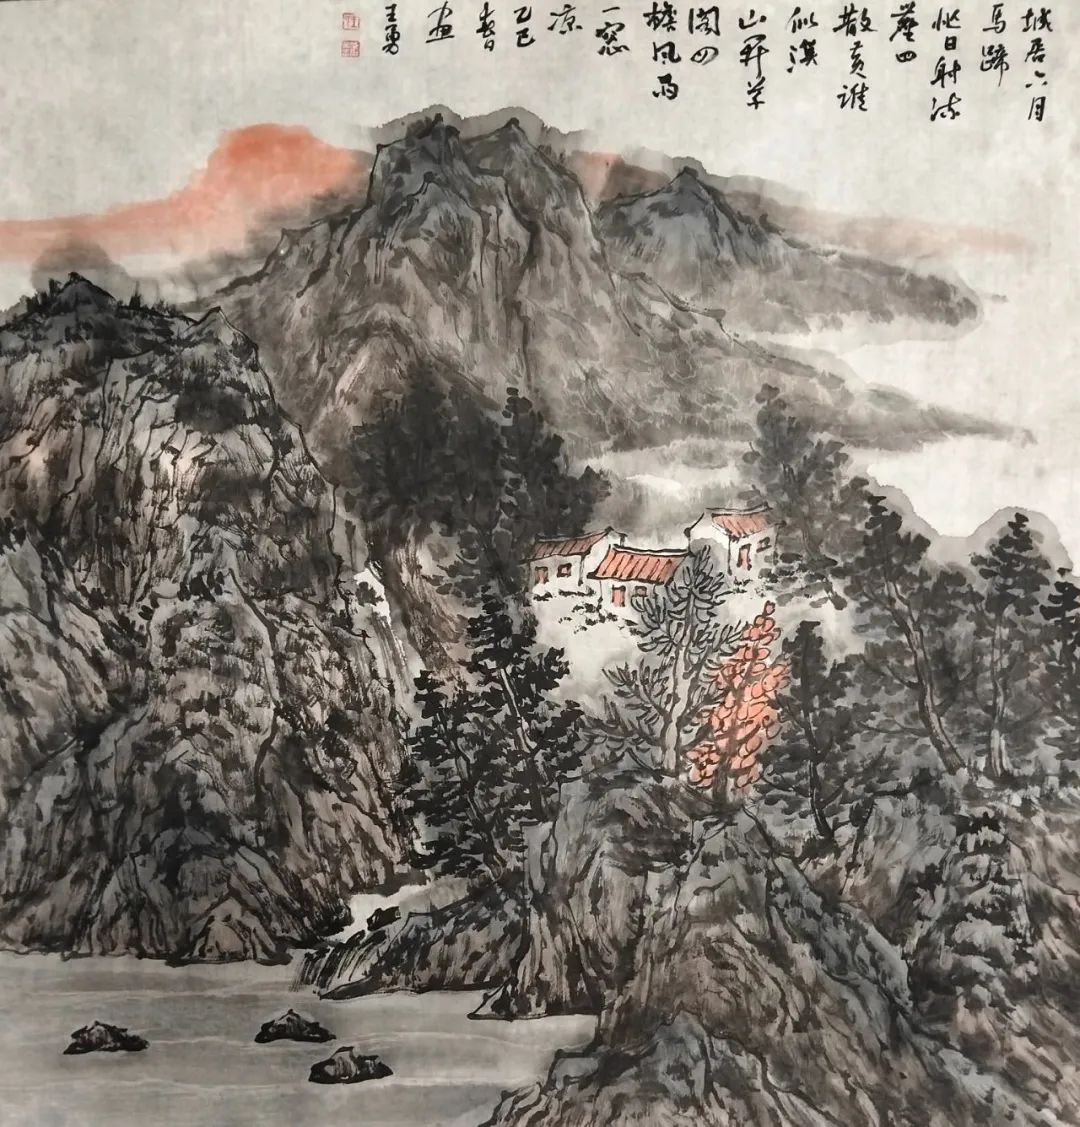 城居六月
马蹄
忙日射流
塵四
散黄谁
似溪
山开草
阁四
檐风雨
一窗
凉
乙巳
春
画
王勇